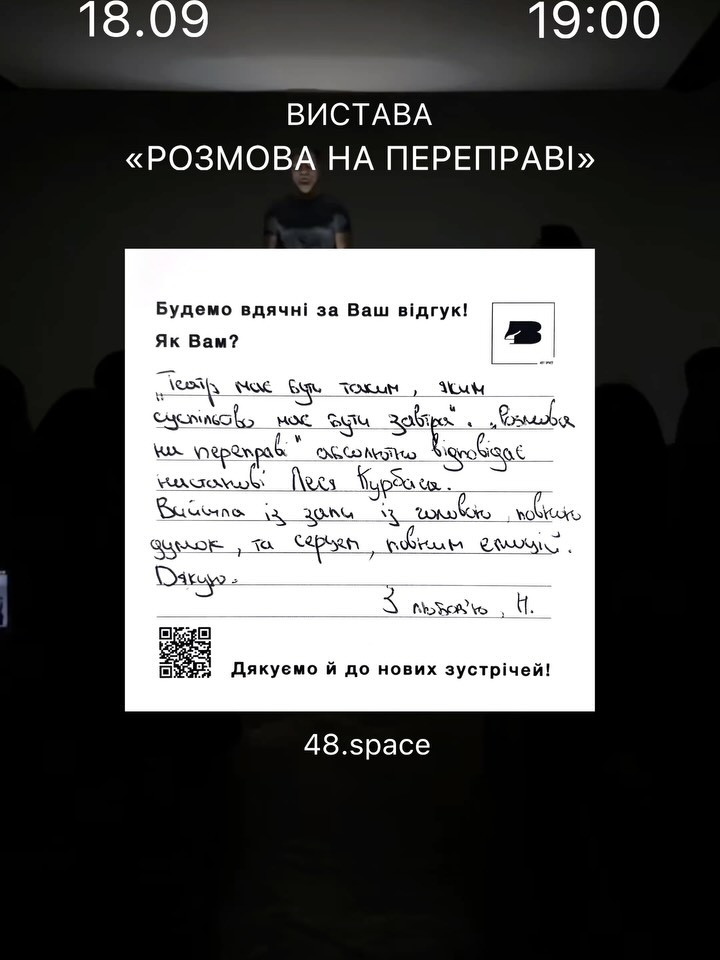 18.09 19:00
ВИСТАВА
«РОЗМОВА НА ПЕРЕПРАВІ»
Будемо вдячні за Ваш відгук!
Як Вам?
„Театр має бути таким, яким
суспільство має бути завтра". „Розмова
на переправі" абсолютно відповідає
настанові Леся Курбаса.
Вийшла із зали із головою, повною
думок, та серцем, повним емоцій.
Дякую.
З любов'ю, Н.
Дякуємо й до нових зустрічей!
48.space